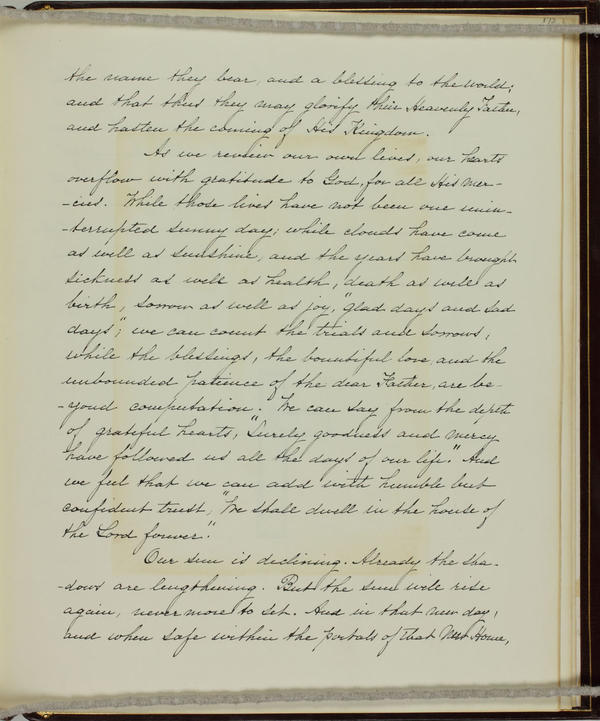 the name they bear, and a blessing to the world;
and that thus they may glorify their Heavenly Father,
and hasten the coming of His Kingdom.
As we review our own lives, our hearts
overflow with gratitude to God, for all His mer-
-cies. While those lives have not been one unin-
-terrupted sunny day; while clouds have come
as well as sunshine, and the years have brought
sickness as well as health, death as well as
birth, sorrow as well as joy, "glad days and sad
days"; we can count the trials and sorrows;
while the blessings, the bountiful love, and the
unbounded patience of the dear Father, are be-
-yond computation. We can say from the depth
of grateful hearts, "Surely goodness and mercy
have followed us all the days of our life." And
we feel that we can add with humble but
confident trust, "We shall dwell in the house of
the Lord forever."
Our sun is declining. Already the sha-
-dows are lengthening. But the sun will rise
again, never more to set. And in that new day,
and when safe within the portals of that Home,